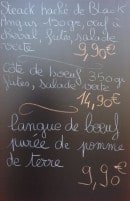 Steack haché de Black
Angus 150gr, œuf à
cheval, frites, salade
verte
9,90€
côte de bœuf 350gr
frites, salade verte
14,90€
langue de bœuf
purée de pomme
de terre
9,90€